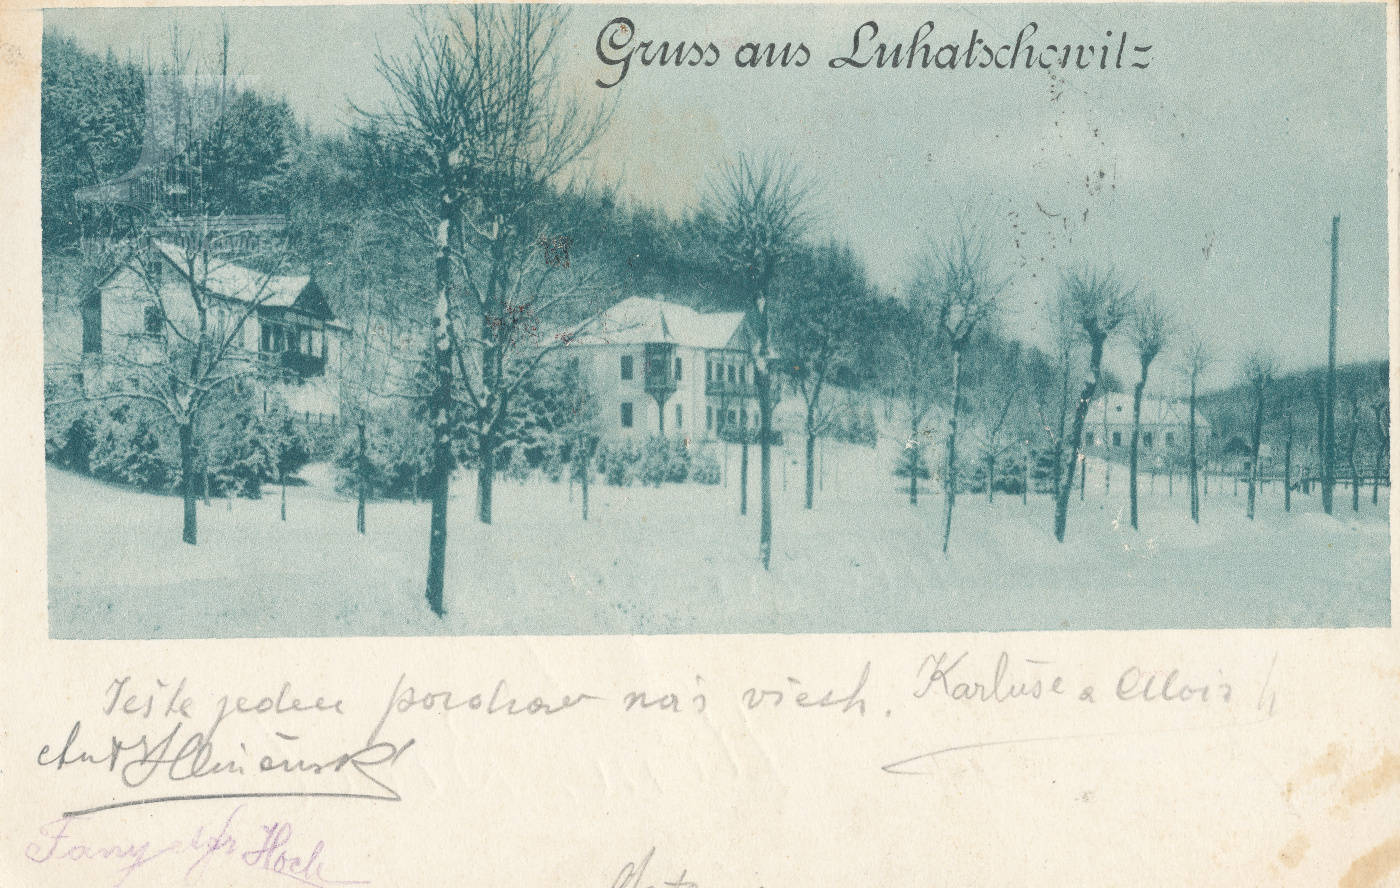 Gruss aus Luhatschowitz
Ješte jeden pozdrav nás všech. Karluše a Alois
Ant
Fany Hoch